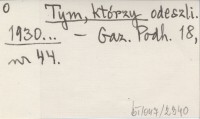 0 Tym, którzy odeszli.
1930... – Gaz. Podh. 18,
nr 44.
61/047/2940